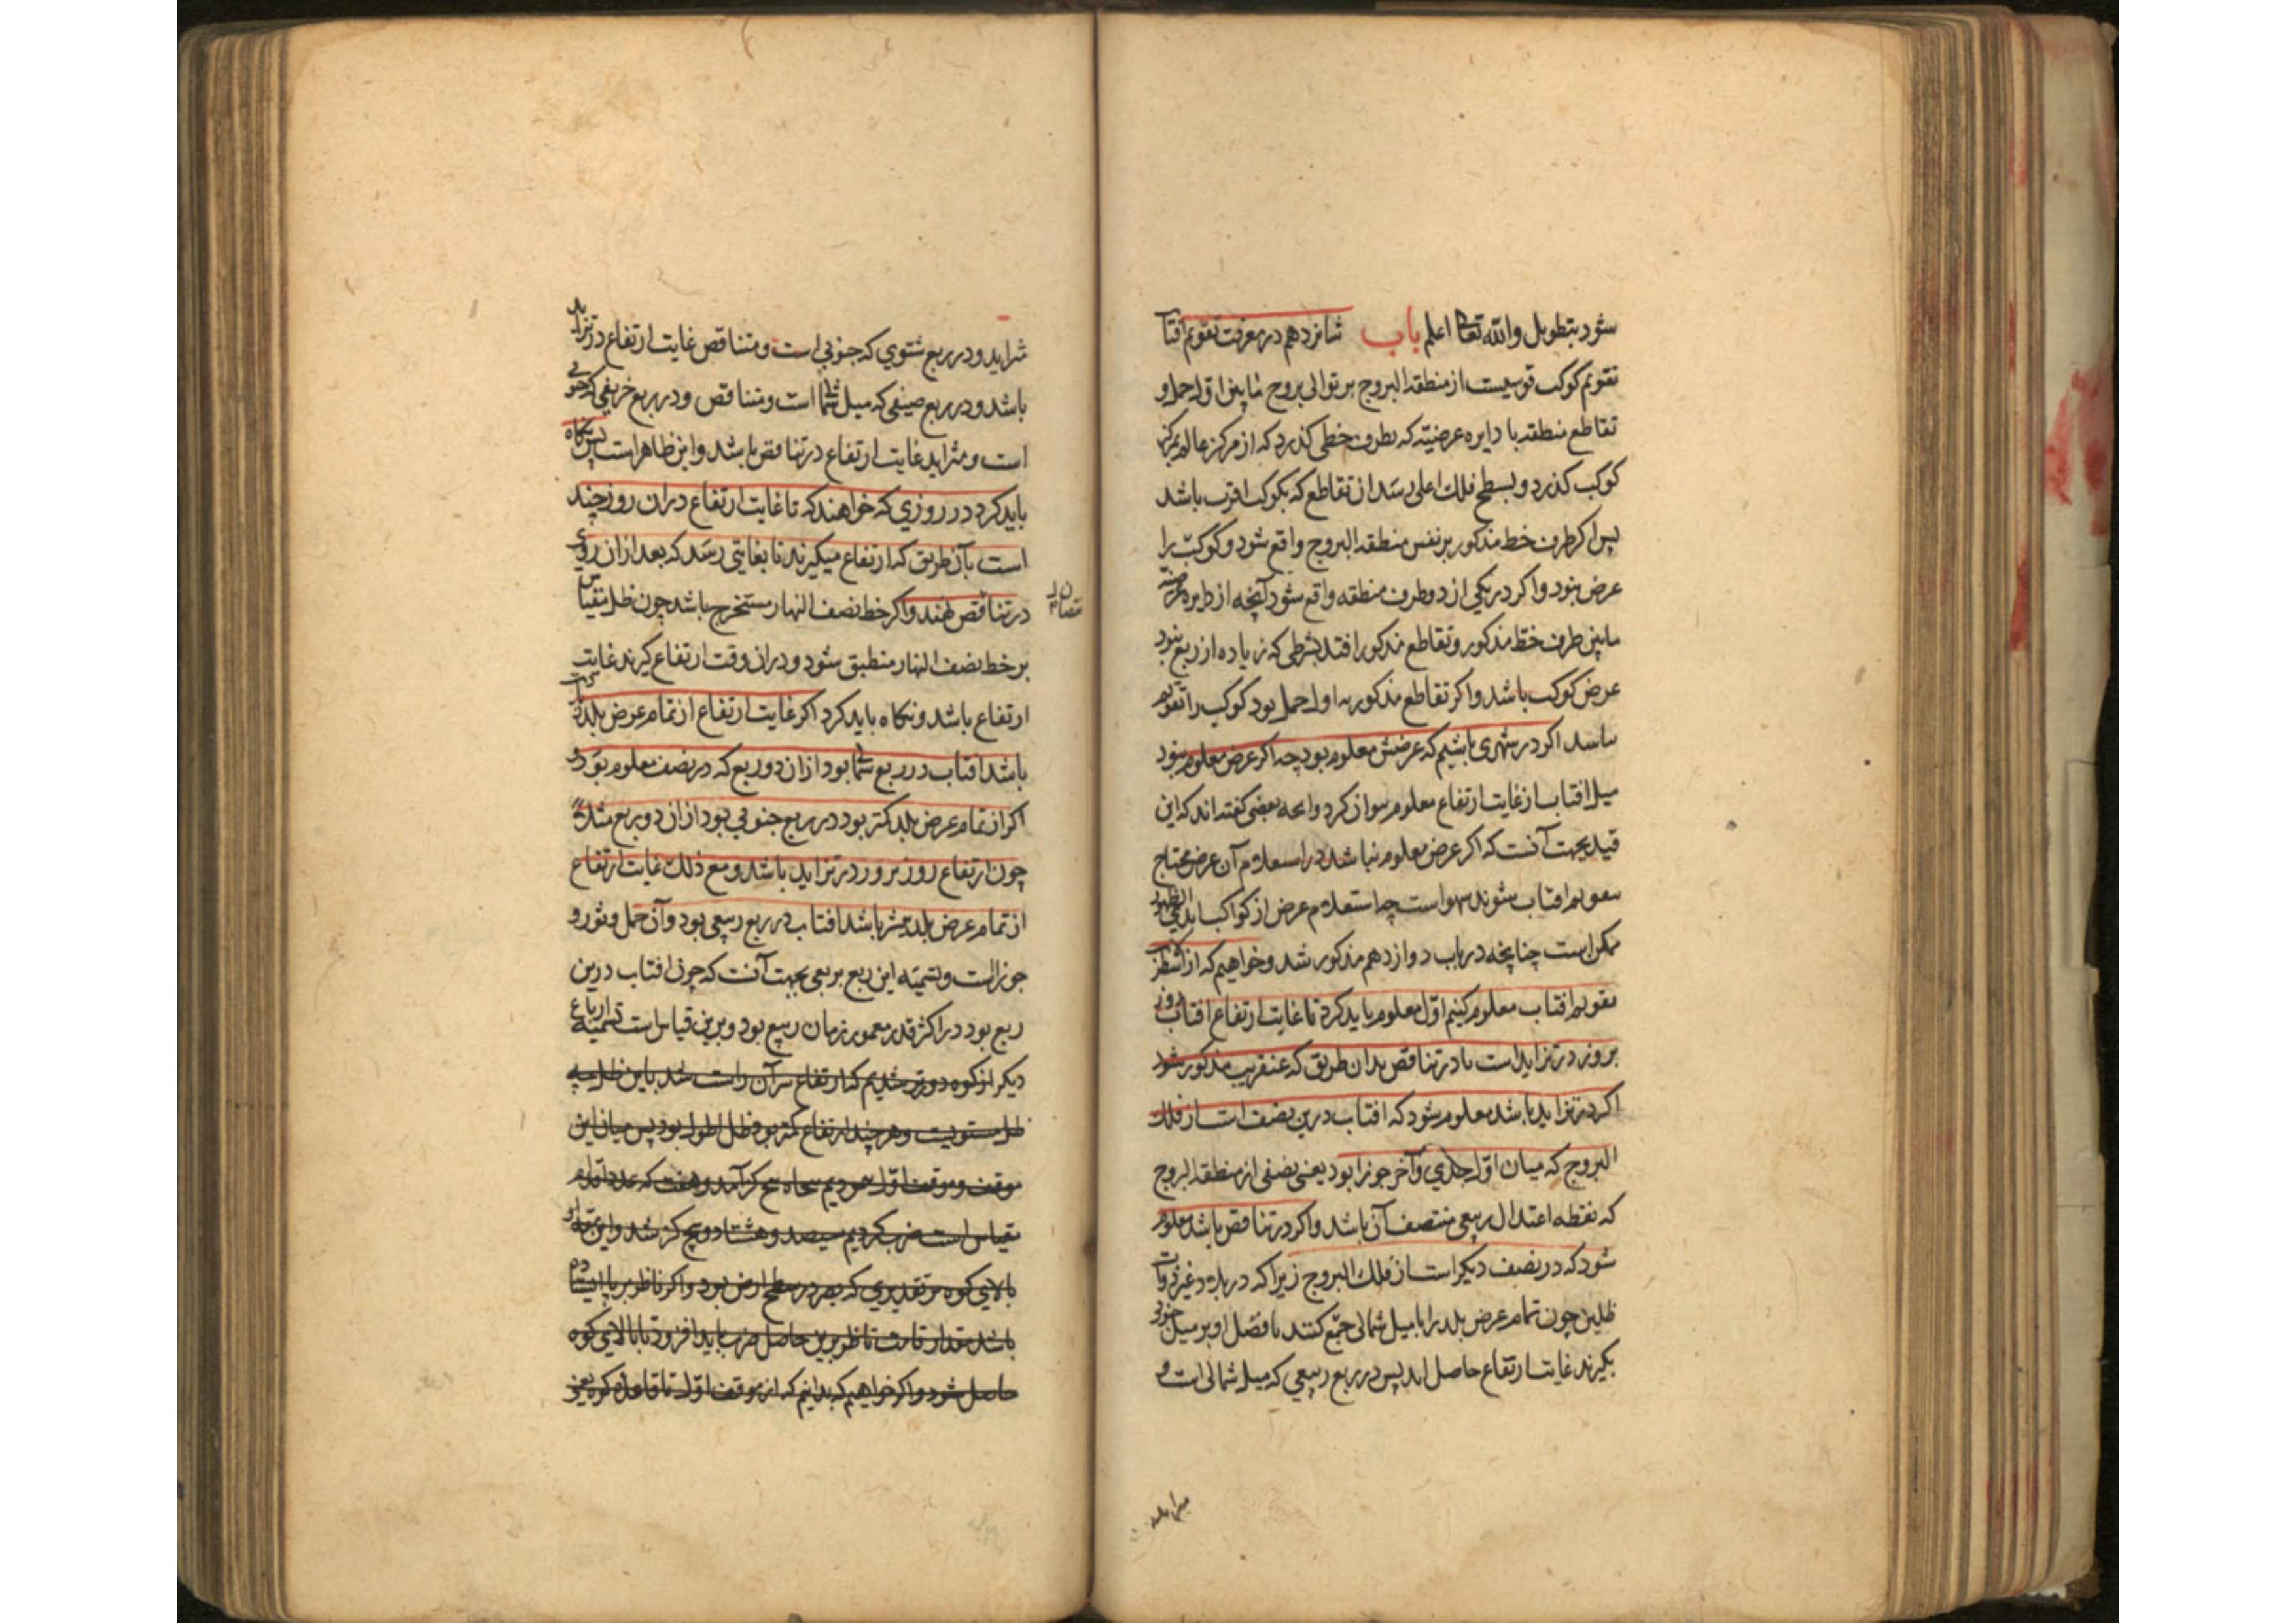 شود بتطویل والله تعا اعلم باب شانزدهم در معرفت تقویم افتاب
تقویم کوکب قوسیست از منطقة البروج بر توالی بروج مابین اول حمل و
تقاطع منطقه با دایره عرضیه که بطرف خطی کذرد که از مرکز عالم بمرکز
کوکب کذرد و بسطح فلک اعلی رسد از تقاطع که بکوکب اقرب باشد
پس اکر طرف خط مذکور بر نفس منطقة البروج واقع شود کوکب را
عرض نبود و اکر در یکی از دو طرف منطقه واقع شود آنچه از دایره عرضیه
مابین طرف خط مذکور و تقاطع مذکور افتد بشرطی که زیاده از ربع نبود
عرض کوکب باشد و اکر تقاطع مذکور به اول حمل بود کوکب را تقویم
نباشد اکر در شهری باشیم که عرضش معلوم بود چه اکر عرض معلوم نبود
میل افتاب از غایت ارتفاع معلوم نتوان کرد و انچه بعضی کفته اند که این
قید بجهت آنست که اکر عرض معلوم نباشد در استعلام آن عرض محتاج
بتقویم افتاب شوند سهو است چه استعلام عرض از کواکب ابدی الظهور
ممکن است چنانچه در باب دوازدهم مذکور شد و خواهیم که از اسطرلاب
تقویم افتاب معلوم کنیم اول معلوم باید کرد تا غایت ارتفاع افتاب روز
بروز در تزاید است یا در تناقص بدان طریق که عنقریب مذکور شود
اکر در تزاید باشد معلوم شود که افتاب درین نصف است از فلک
البروج که میان اول جدی و آخر جوزا بود یعنی نصفی از منطقة البروج
که نقطه اعتدال ربیعی منتصف آن باشد و اکر در تناقص باشد معلوم
شود که در نصف دیکر است از فلک البروج زیرا که در بلاد غیر ذوات
ظلین چون تمام عرض بلد را با میل شمالی جمع کنند یا فضل او بر میل جنوبی
بکیرند غایت ارتفاع حاصل اید پس در ربع ربیعی که میل شمالی است و
متزاید و در ربع شتوی که جنوبی است و متناقص غایت ارتفاع در تزاید
باشد و در ربع صیفی که میل شما است و متناقص و در ربع خریفی که جنوبی
است و متزاید غایت ارتفاع در تناقص باشد و این ظاهر است پس نکاه
باید کرد در روزی که خواهند که تا غایت ارتفاع دران روز چند
است بآن طریق که ارتفاع میکیرند تا بغایتی رسد که بعد ازان روی
در تناقص نهند و اکر خط نصف النهار مستخرج باشد چون ظل مقیاس
نقصان
بر خط نصف النهار منطبق شود و دران وقت ارتفاع کیرند غایت
ارتفاع باشد و نکاه باید کرد اکر غایت ارتفاع از تمام عرض بلد بیشتر
باشد افتاب در ربع شما بود ازان دو ربع که در نصف معلوم بود و
اکر از تمام عرض بلد کمتر بود در ربع جنوبی بود ازان دو ربع مثلا
چون ارتفاع روز بروز در تزاید باشد و مع ذلک غایت ارتفاع
از تمام عرض بلد بیشتر باشد افتاب در ربع ربیعی بود و آن حمل و ثور و
جوزاست و تسمیه این ربع بربیعی بجهت آنست که چون افتاب درین
ربع بود در اکثر قدر معمور زمان ربیع بود و برین قیاس است تسمیه ارباع
دیکر از کوه دورتر شدیم که ارتفاع سر آن راست شد باین ظل چه
ظل مستویست و هر چند ارتفاع کمتر بود ظل اطول بود پس میان این
موقف و موقف اول پیمودیم پنجاه و پنج کز آمد و هفت که عدد اقدام
مقیاس است ضرب کردیم سیصد و هشتاد و پنج کز شد و این
بالای کوه بر تقدیری که بصر در سطح ارض بود و اکر ناظر بر پا ایستاده
باشد مقدار قامت ناظر برین حاصل ضرب باید افزود تا بالای کوه
حاصل شود و اکر خواهیم که بدانیم که از موقف اول تا قاعده کوه یعنی